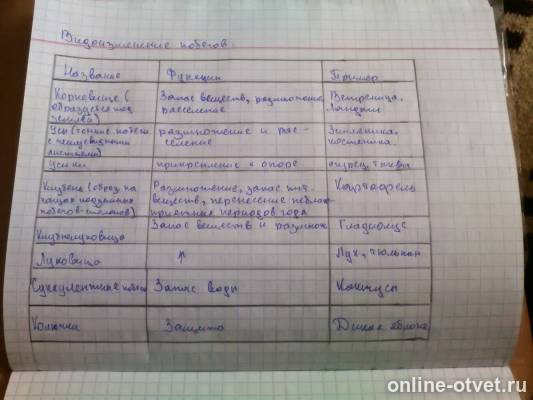 Видоизменение побегов.
Название Функции Пример
Корневище ( Запас веществ, размножение, Ветреница,
образуется под расселение Ландыш
землёй)
Усы (тонкие побеги размножение и рас- Земляника,
с чешуевидными селение костяника
листьями)
Усики прикрепление к опоре огурец, тыква
Клубень (образ. на Размножение, запас пит. Картофель
подземных веществ, перенесение неблаго-
побегов-столонов) приятных периодов года
Клубнелуковица Запас веществ и размнож Гладиолус
Луковица ↑ Лук, тюльпан
Суккулентные побеги Запас воды Кактусы
Колючки Защита Дикая яблоня
online-otvet.ru